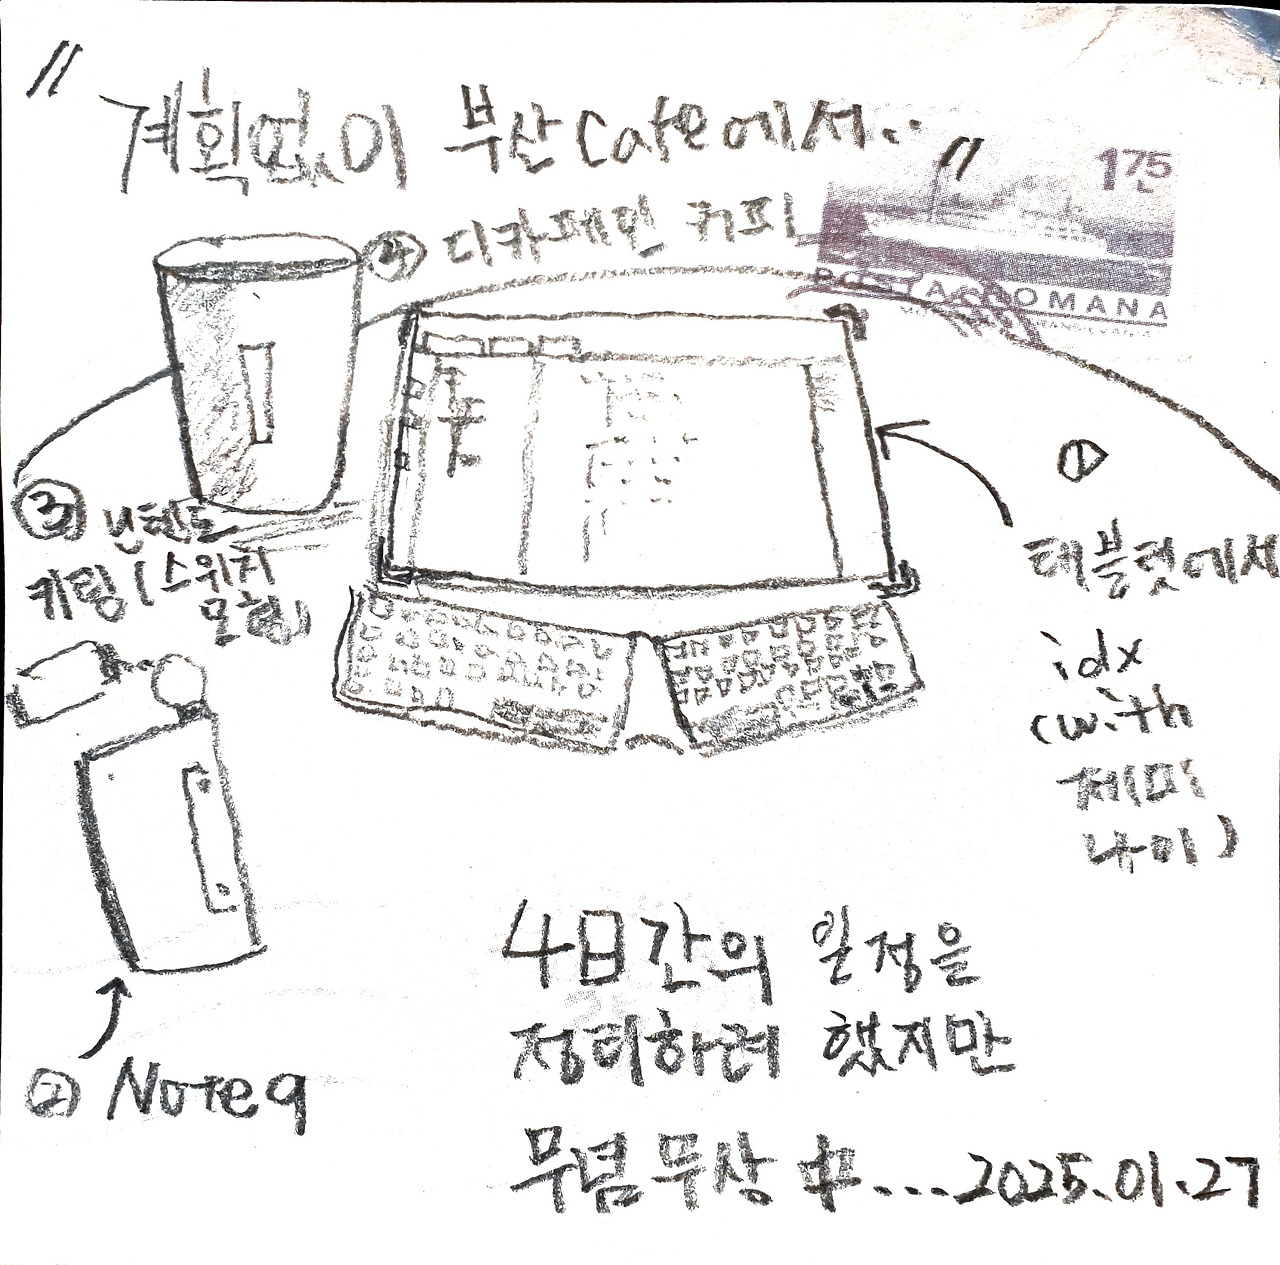 " 계획없이 부산 Cafe에서.. "
175
L
POSTA ROMANA
④ 디카페인 커피
①
태블릿에서
idx
(with
제미
나이)
③
키링 (스위치
모형)
② Note9
4日간의 일정을
정리하려 했지만
무념무상 中...2025.01.27